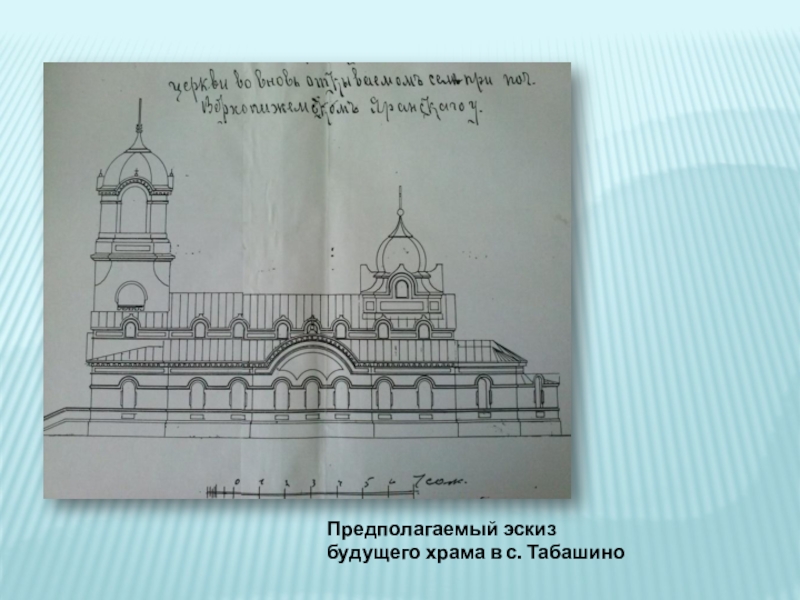 церкви во вновь открываемомъ селѣ при поч.
Верхопижемскомъ Яранскаго у.
0 1 2 3 4 5 6 7 саж.
Предполагаемый эскиз
будущего храма в с. Табашино